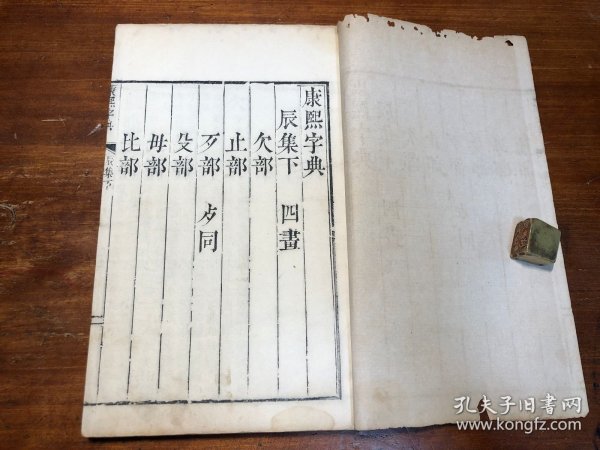 康熙字典
辰集下 四畫
欠部
止部
歹部 歺同
殳部
毋部
比部
康熙字典 辰集下
孔夫子旧書网
www.kongfz.com